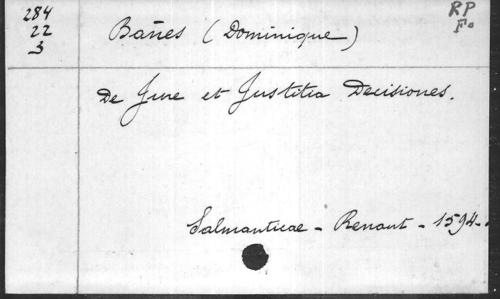 284
22
3
Bañes (Dominique)
RP
Fo
De Jure et Justitia Decisiones.
Salmanticae - Renaut - 1594.